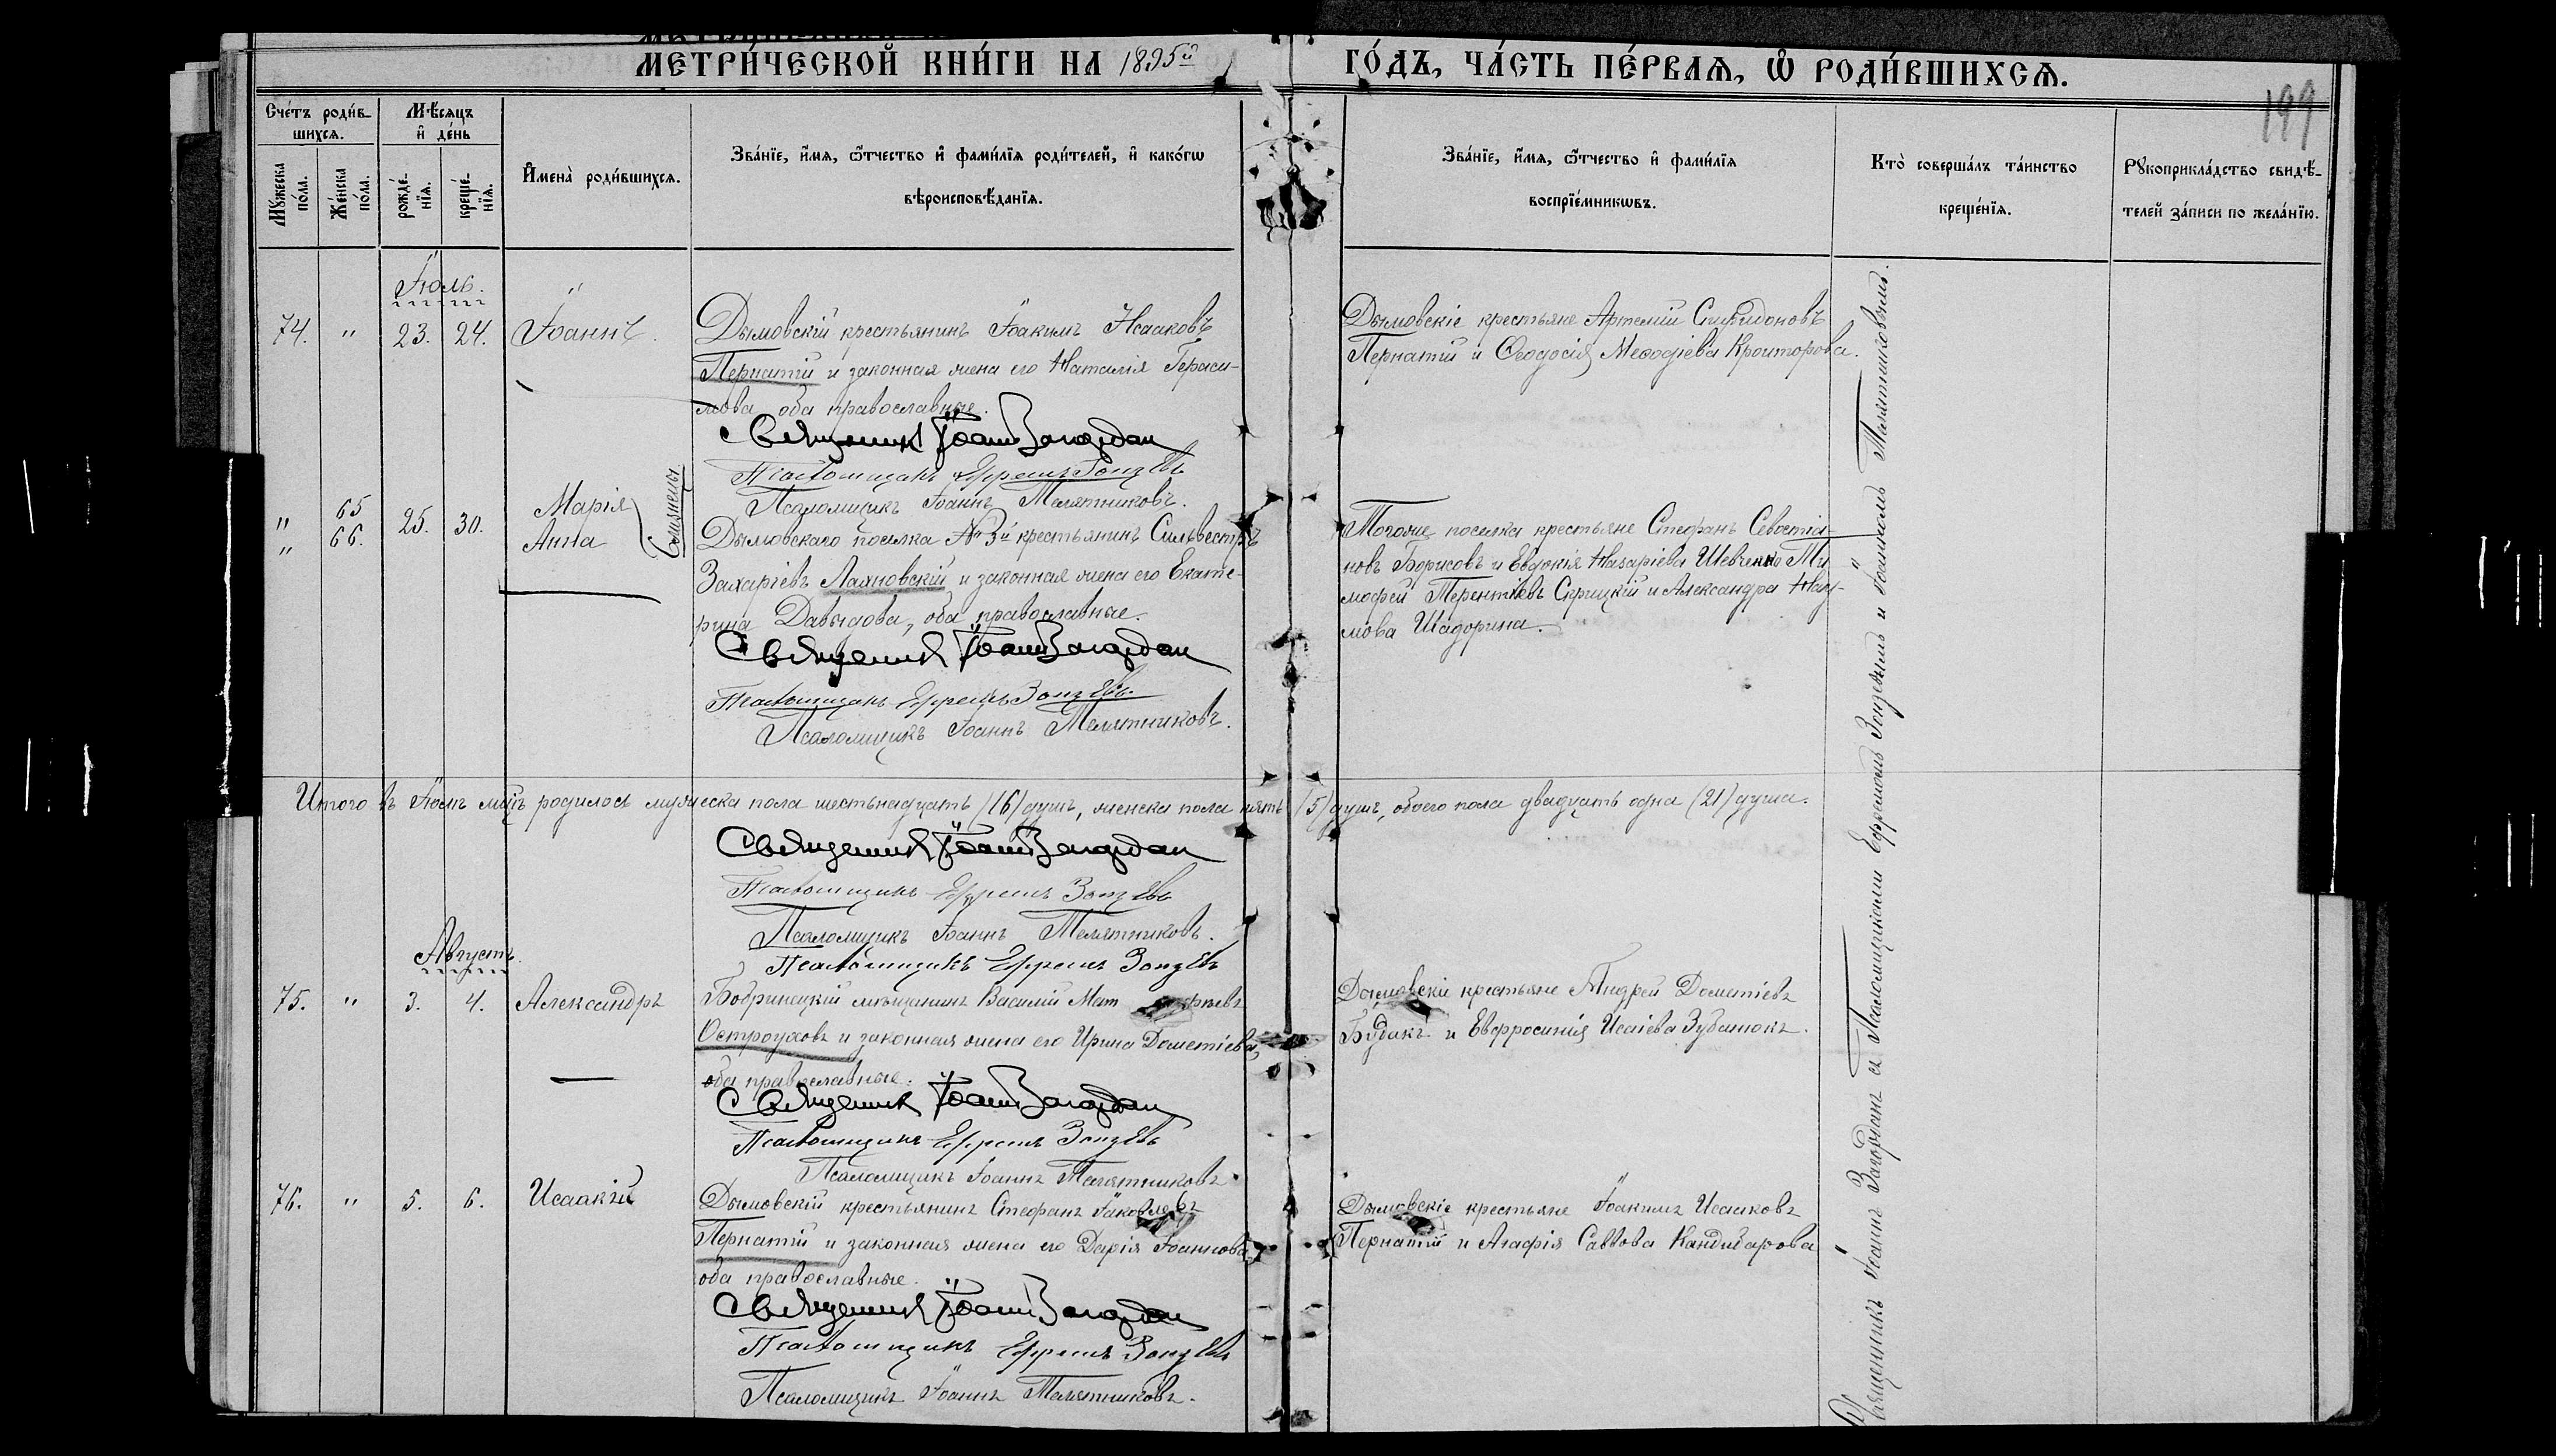 МЕТРИ́ЧЕСКОЙ КНИ́ГИ НА 1895й ГО́ДЪ, ЧА́СТЬ ПЕ́РВАѦ, Ѡ РОДИ́ВШИХСѦ.
199
Сче́тъ роди́в-
шихсѧ.
Мѣсѧцъ
и де́нь
Мꙋжеска по́ла.
Же́нска по́ла.
рожде́-нїѧ.
креще́-нїѧ.
Имена̀ роди́вшихсѧ.
Зва́нїе, и́мѧ, ѿчество и фами́лїѧ роди́телей, и како́гѡ
вѣроисповѣ́данїѧ.
Зва́нїе, и́мѧ, ѿчество и фами́лїѧ
воспрїе́мникѡвъ.
Кто̀ соверша́лъ та́инство
креще́нїѧ.
Рꙋкоприкла́дство свидѣ́-
телей за́писи по жела́нїю.
Іюль.
74. " 23. 24. Іоаннъ.
Дымовскій крестьянинъ Іоакимъ Исааковъ
Пернатій и законная жена его Наталія Гераси-
мова оба православные.
Священникъ Іоаннъ Загордан
Псаломщикъ Ефремъ Зонзевъ
Псаломщикъ Іоаннъ Телятниковъ.
Дымовскіе крестьяне Артемій Спиридоновъ
Пернатій и Ѳеодосія Меѳодіева Кроиторова.
" 65
" 66. 25. 30. Марія
Анна
близнецы
Дымовскаго поселка № 3й крестьянинъ Сильвестръ
Захаріевъ Лахновскій и законная жена его Екате-
рина Давыдова, оба православные.
Священникъ Іоаннъ Загордан
Псаломщикъ Ефремъ Зонзевъ.
Псаломщикъ Іоаннъ Телятниковъ.
Тогоже поселка крестьяне Стефанъ Севастіа-
новъ Борисовъ и Евдокія Назаріева Шевченко Ти-
мофей Терентіевъ Сприцкій и Александра Нау-
мова Шадорина.
Итого въ Іюлѣ мцѣ родилось мужеска пола шестьнадцать (16) душъ, женска пола пять (5) душъ, обоего пола двадцать одна (21) душа.
Священникъ Іоаннъ Загордан
Псаломщикъ Ефремъ Зонзевъ
Псаломщикъ Іоаннъ Телятниковъ.
Псаломщикъ Ефремъ Зонзевъ
Августъ.
75. " 3. 4. Александръ
Бобринецкій мѣщанинъ Василій
Остроуховъ и законная жена его Ирина Дометіева,
оба православные.
Священникъ Іоаннъ Загордан
Псаломщикъ Ефремъ Зонзевъ
Псаломщикъ Іоаннъ Телятниковъ.
Дымовскіе крестьяне Андрей Дометіевъ
Будакъ и Евфросинія Исаіева Зубатюкъ.
76. " 5. 6. Исаакій
Дымовскій крестьянинъ Стефанъ Іаковлевъ
Пернатій и законная жена его Дарія Іоаннова,
оба православные.
Священникъ Іоаннъ Загордан
Псаломщикъ Ефремъ Зонзевъ
Псаломщикъ Іоаннъ Телятниковъ.
Дымовскіе крестьяне Іоакимъ Исааковъ
Пернатій и Агафія Саввова Кандибарова
Священникъ Іоаннъ Загорданъ съ Псаломщиками Ефремомъ Зонзевымъ и Іоанномъ Телятниковымъ.